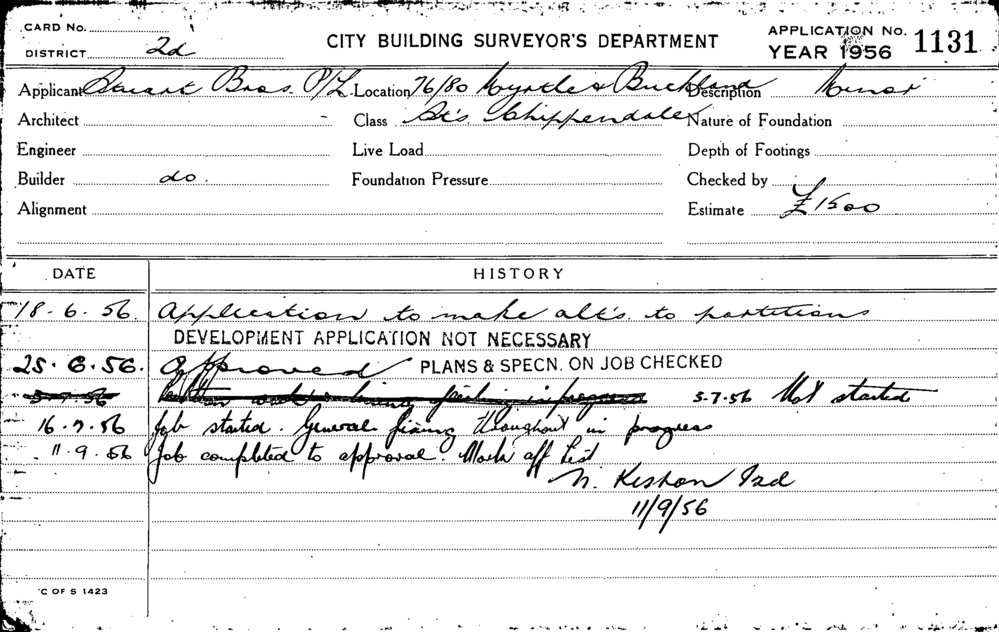 CARD No.
DISTRICT 2d
CITY BUILDING SURVEYOR'S DEPARTMENT
APPLICATION No. 1131
YEAR 1956
Applicant Stuart Bros. P/L. Location 76/80 Myrtle & Buckland Description Minor
Architect Class St's Chippendale Nature of Foundation
Engineer Live Load Depth of Footings
Builder do. Foundation Pressure Checked by
Alignment Estimate £1500
DATE HISTORY
18-6-56. Application to make alt's to partitions
DEVELOPMENT APPLICATION NOT NECESSARY
25.6.56. Approved PLANS & SPECN. ON JOB CHECKED
5-7-56 in progress 5.7.56 Not started
16.7.56 Job started. General fixing throughout in progress
11.9.56 Job completed to approval. Mark off list
N. Keshan 2d
11/9/56
C OF S 1423